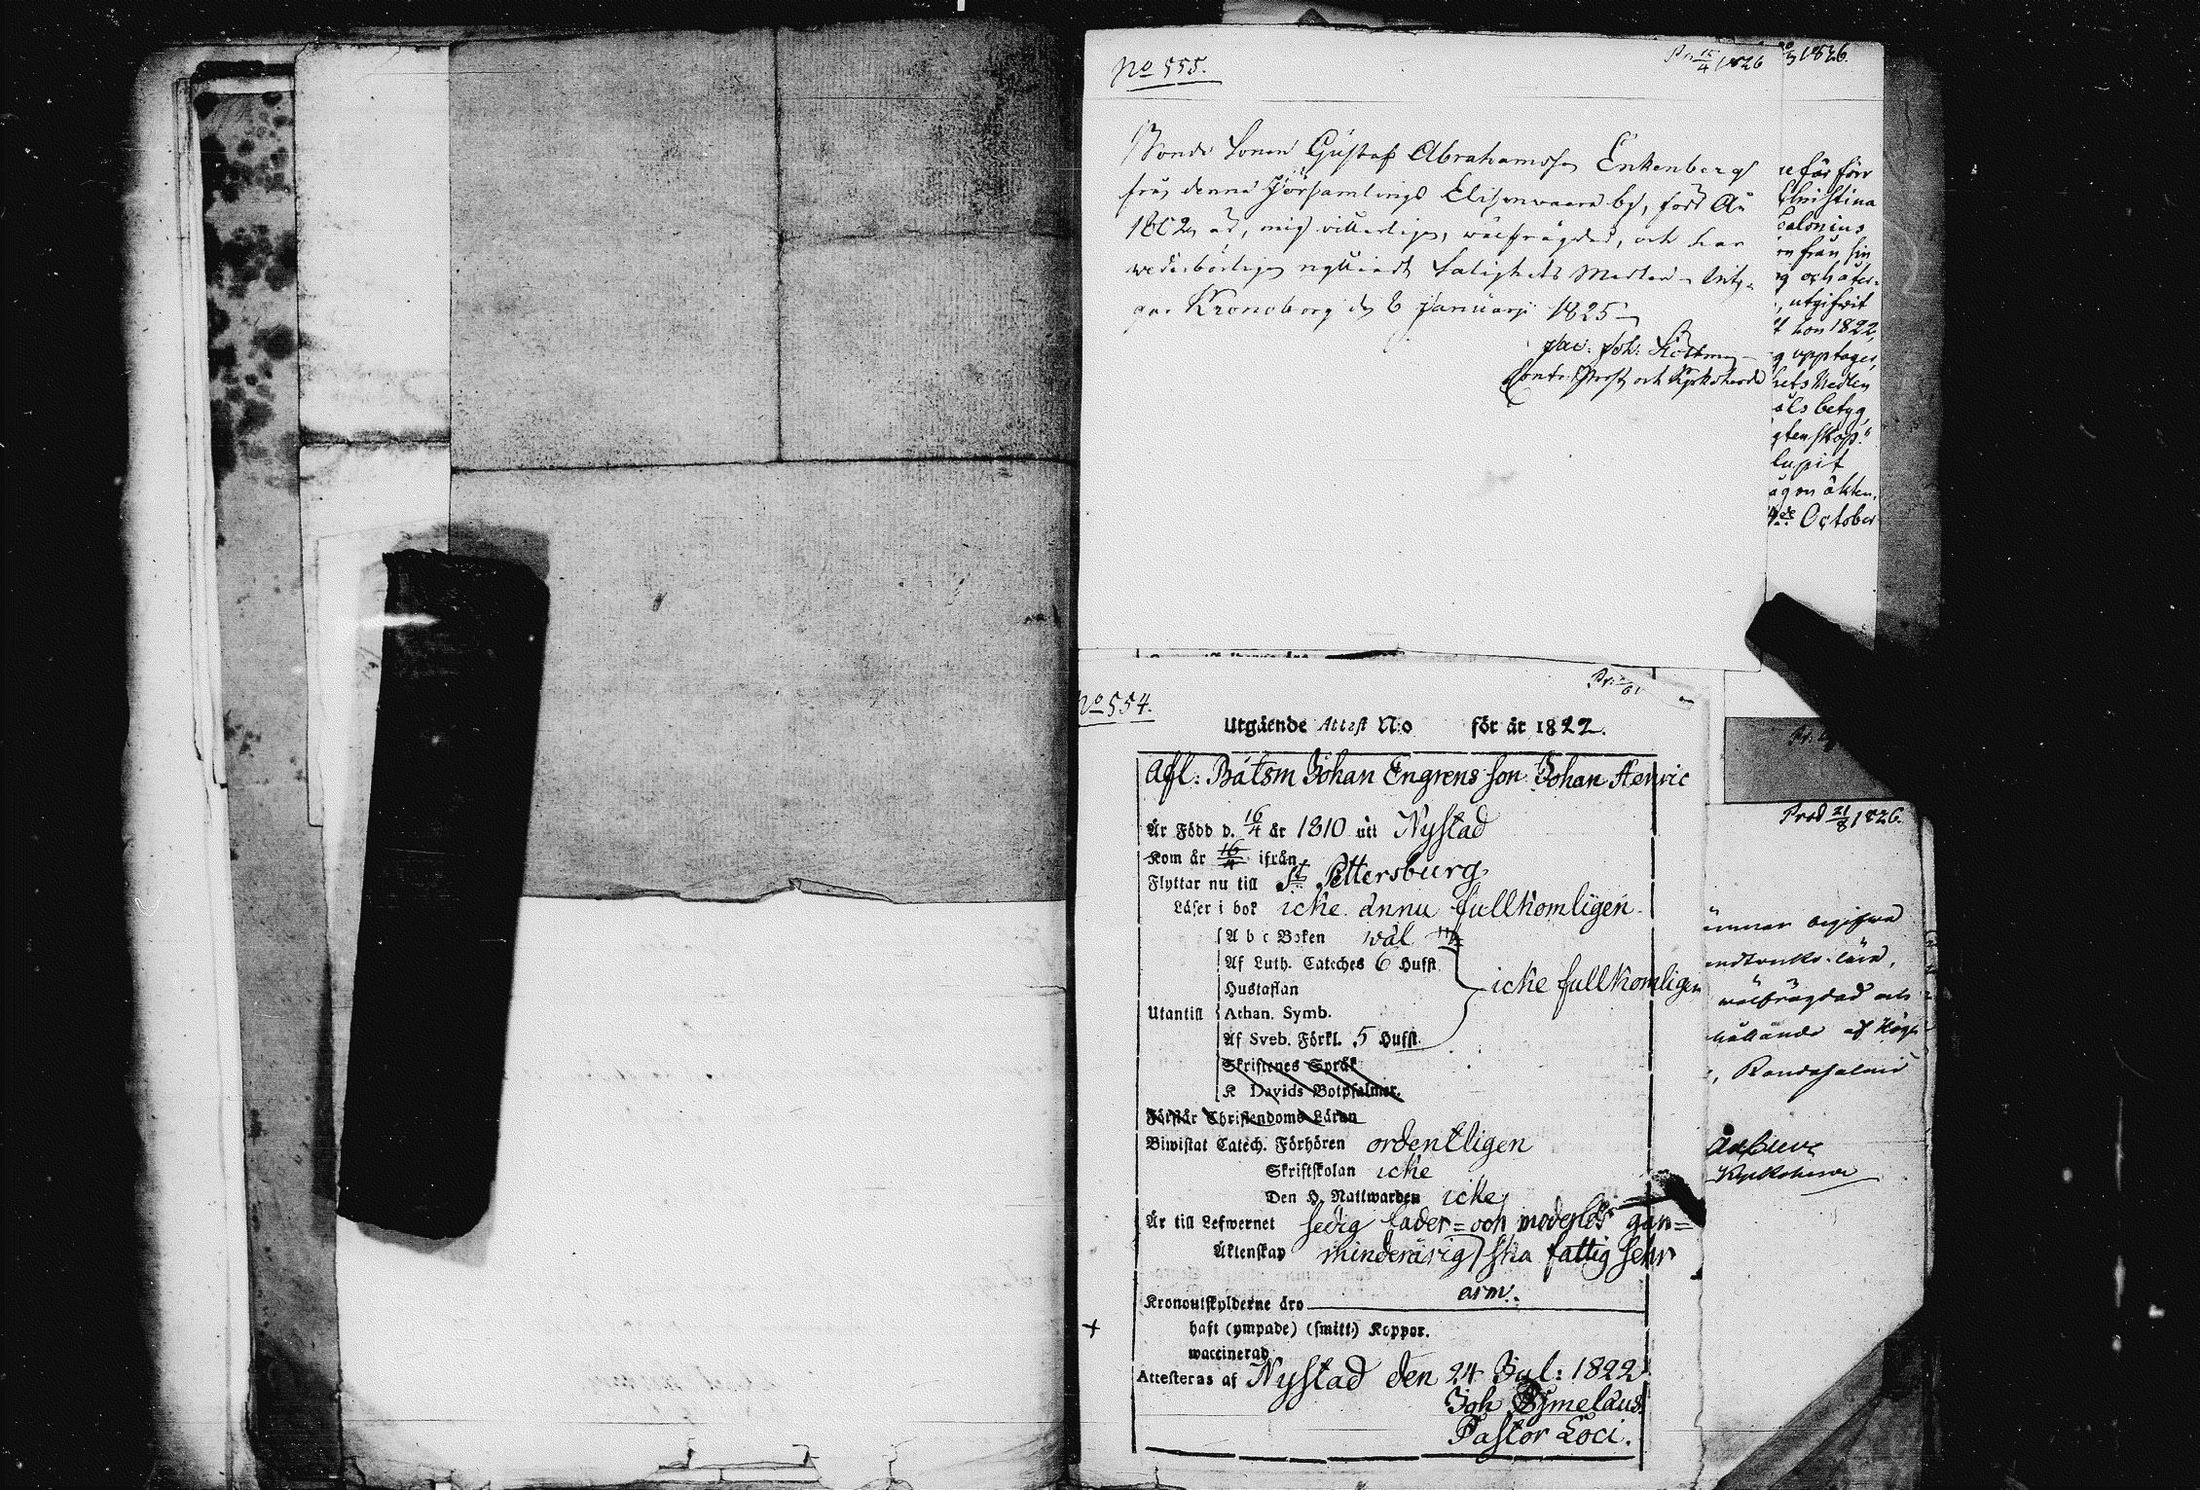 No 555.
Pr. 15/4 1826
Bonde Sonen Gustaf Abrahamsson Enkenberg
från denna Församlings Elisenwaara by, född År
1802, är, mig witterligen, wälfrägdad, och har
wederbörligen nyttiadt Salighets Medlen, Inty-
gar Kronoborg den 8 Januarji 1825
Jac. Joh.
Contr. Prost och Kyrkoherde
/3 1826.
Christina
Calonius
en från sin
g och åter-
, utgifwit
t hon 1822,
g upptages,
hets Medlen
äls betyg,
gtenskap."
lupit
ågon äkten-
de October
No 554.
Utgående Attest N:o för år 1822.
Afl: Båtsm Johan Engrens son Johan Henric
Är Född d. 16/4 år 1810 uti Nystad
Kom år 16/4 ifrån
Flyttar nu till St Pettersburg
Läser i bok icke ännu fullkomligen
A b c Boken wäl
Af Luth. Cateches 6 Hufst
Hustaflan
icke fullkomligen
Utantill Athan. Symb.
Af Sveb. Förkl. 5 Hufst.
Skriftenes Språk
K Davids Botpsalmer.
Förstår Christendoms Läran
Biwistat Catech. Förhören ordentligen
Skriftskolan icke
Den H. Nattwarden icke
Är till Lefwernet sedig fader= och moderlös gan=
Äktenskap minderårig ska fattig sehr
arm.
Kronoutskylderne äro
haft (ympade) (smitt:) Koppor.
waccinerad
Attesteras af Nystad den 24 Jul: 1822
Joh
Pastor Loci.
Prod 21/8 1826.
wälfrägdad och
Randasalmi
Kyrkoherde